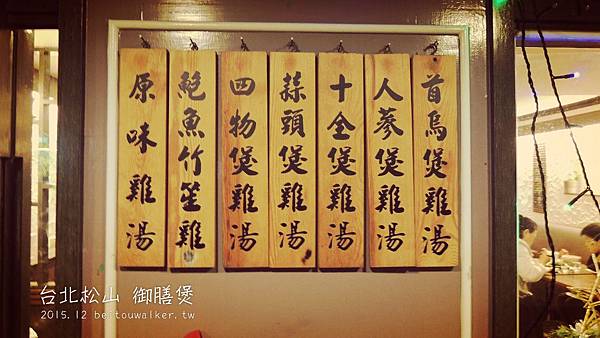 首烏煲雞湯
人蔘煲雞湯
十全煲雞湯
蒜頭煲雞湯
四物煲雞湯
鮑魚竹笙雞
原味雞湯
台北松山 御膳煲
2015.12 beitouwalker.tw